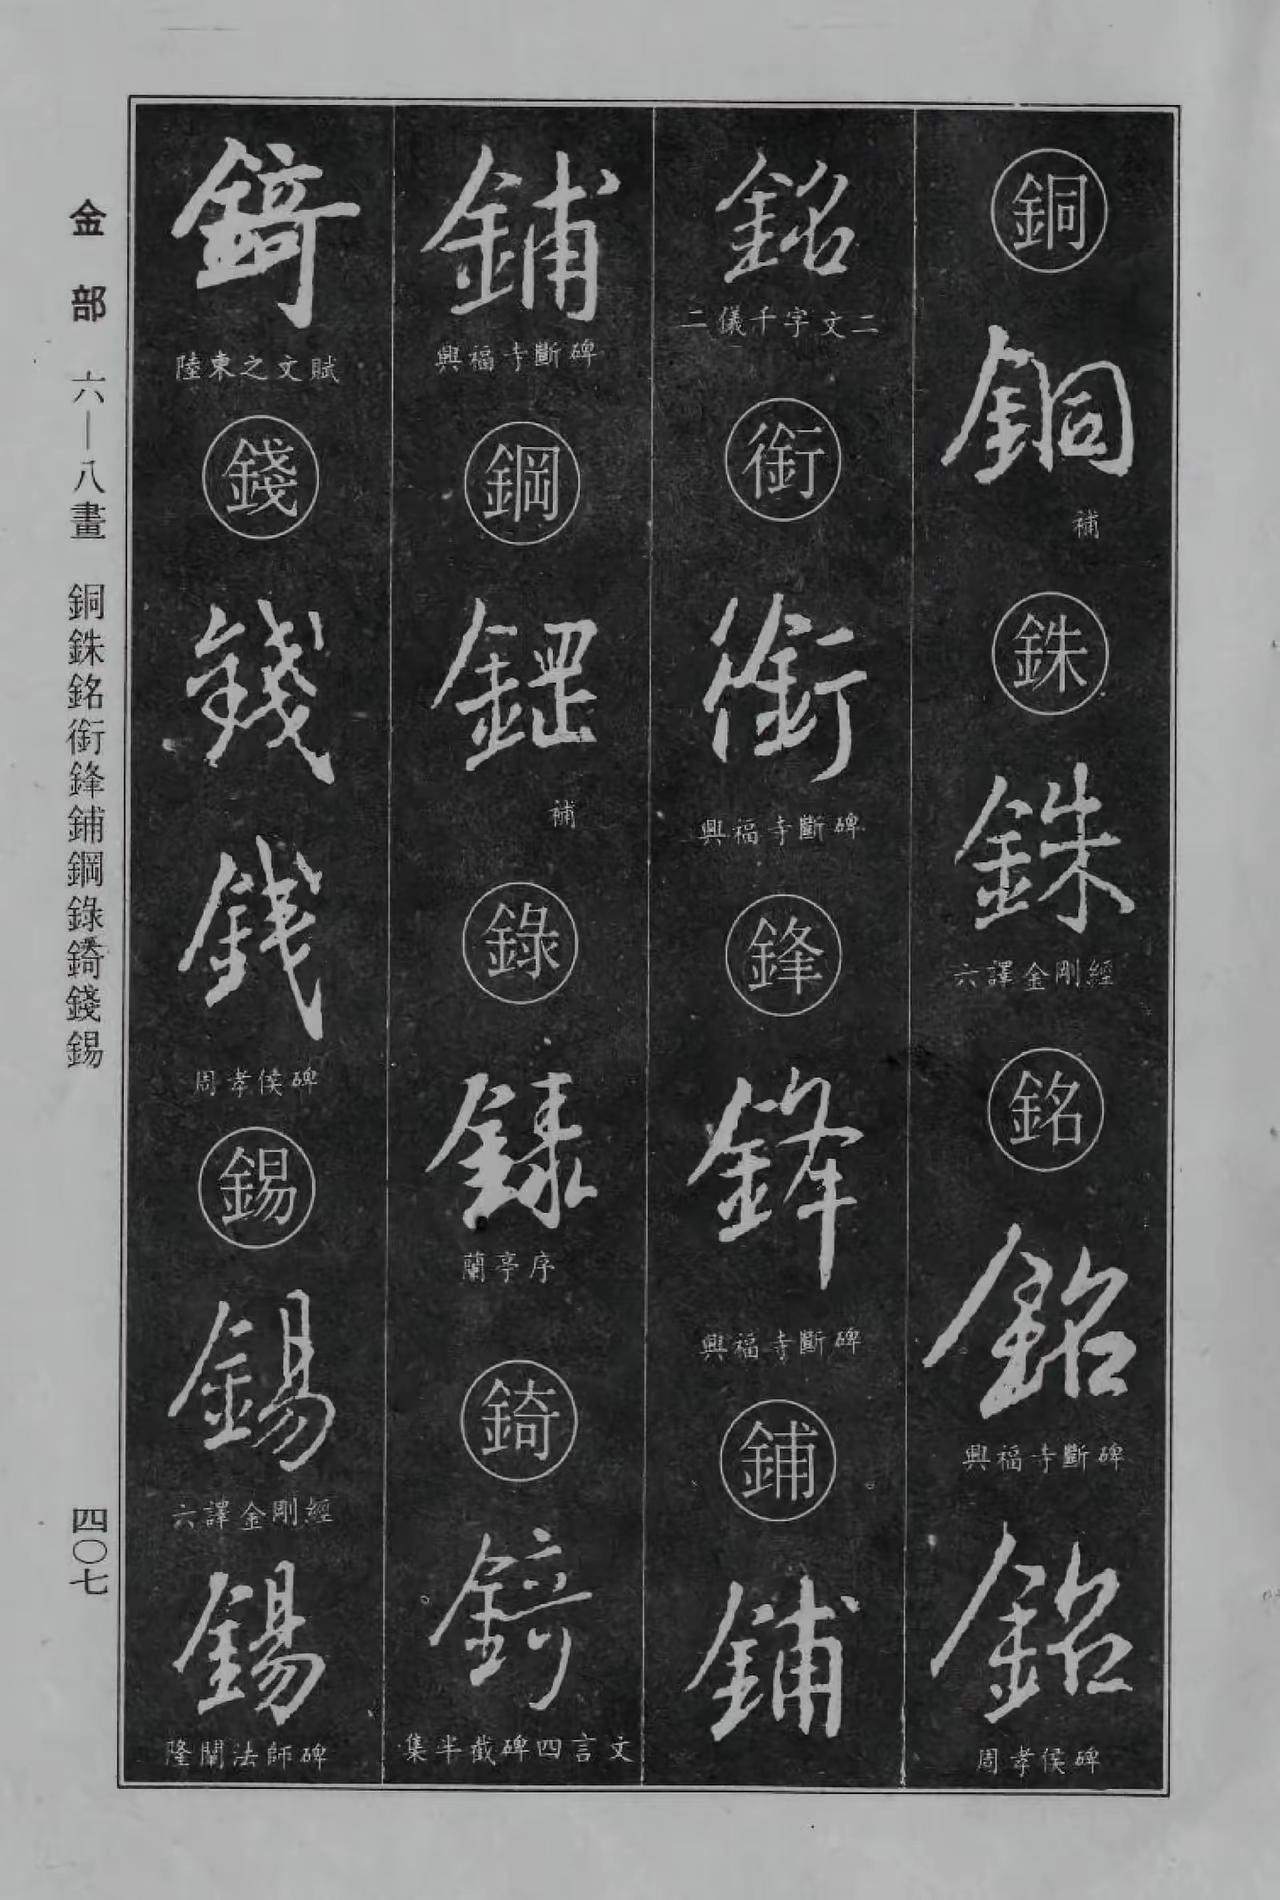 銅
銅
補
銖
銖
六譯金剛經
銘
銘
興福寺斷碑
銘
周孝侯碑
銘
二儀千字文二
銜
銜
興福寺斷碑
鋒
鋒
興福寺斷碑
鋪
鋪
鋪
興福寺斷碑
鋼
鋼
補
錄
錄
蘭亭序
錡
錡
集半截碑四言文
錡
陸柬之文賦
錢
錢
錢
周孝侯碑
錫
錫
六譯金剛經
錫
隆闡法師碑
金部 六—八畫 銅銖銘銜鋒鋪鋼錄錡錢錫
四〇七